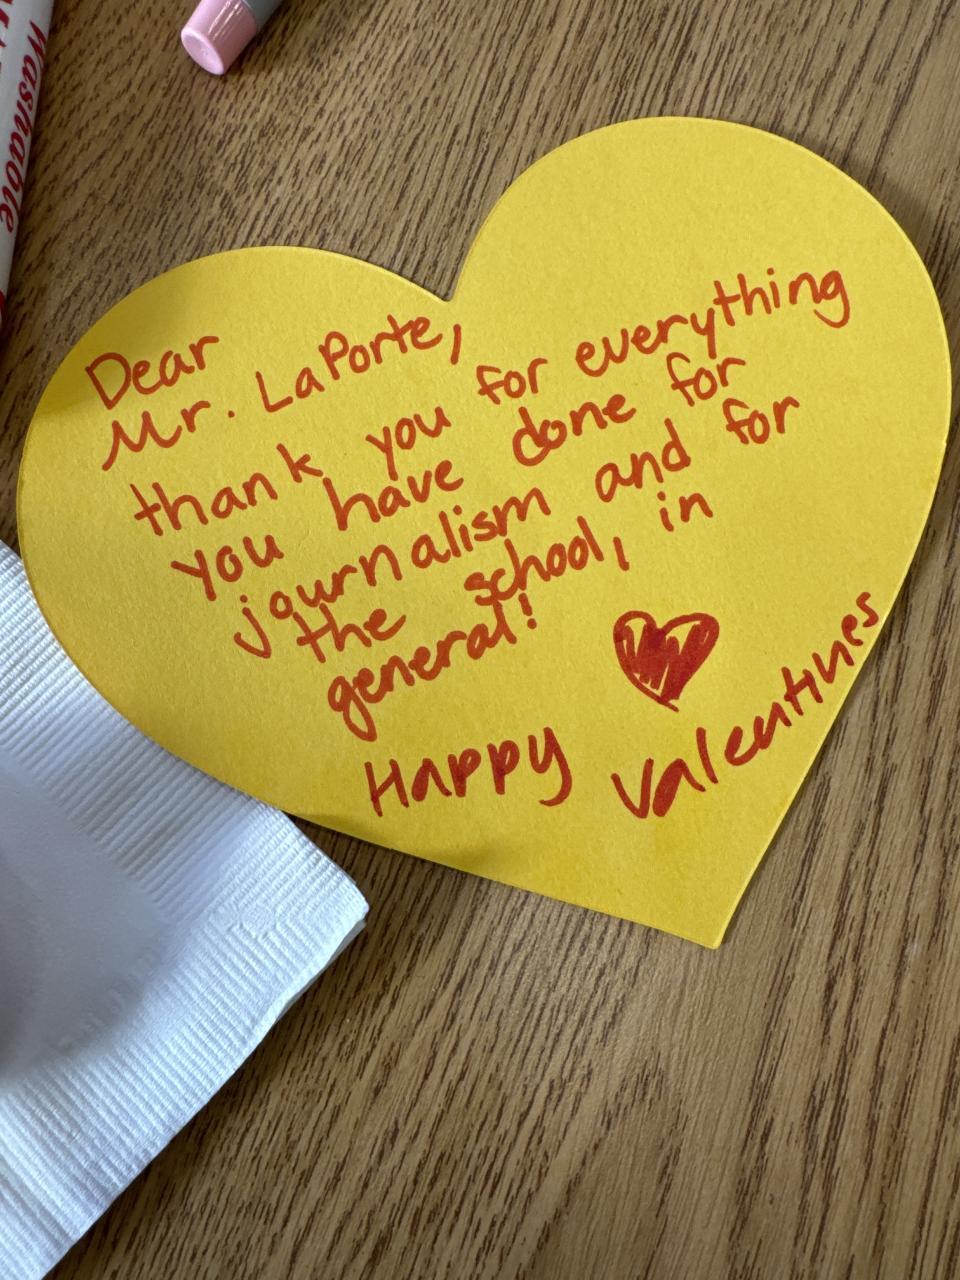 Washable
Dear
Mr. LaPorte,
thank you for everything
you have done for
journalism and for
the school, in
general!
Happy Valentines